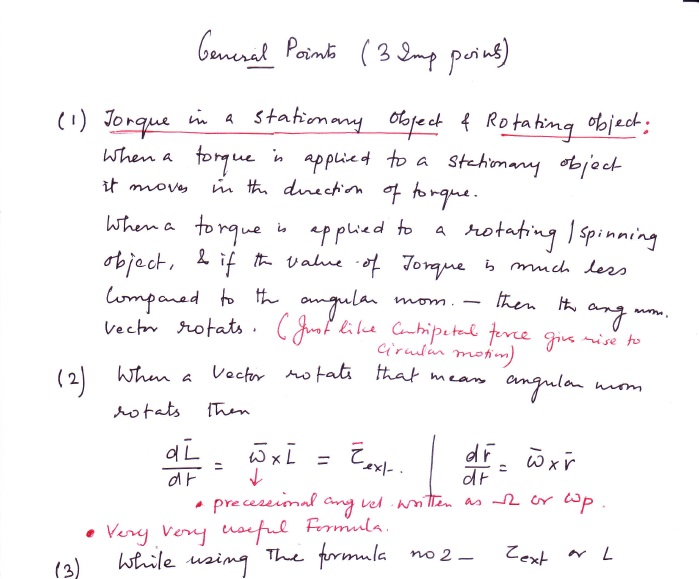 General Points (3 Imp points)
(1) Torque in a stationary object & Rotating object:
When a torque is applied to a stationary object
it moves in the direction of torque.
When a torque is applied to a rotating / spinning
object, & if the value of Torque is much less
Compared to the angular mom. — then the ang mom.
vector rotats. (Just like Centripetal force gives rise to
circular motion)
(2) When a Vector rotats that means angular mom
rotats then
dL̄/dt = ω̄ x L̄ = τ̄ext. | dr̄/dt = ω̄ x r̄
• precessional ang vel. written as Ω or ωp.
• Very Very useful Formula.
(3) While using The formula no 2 — τext or L